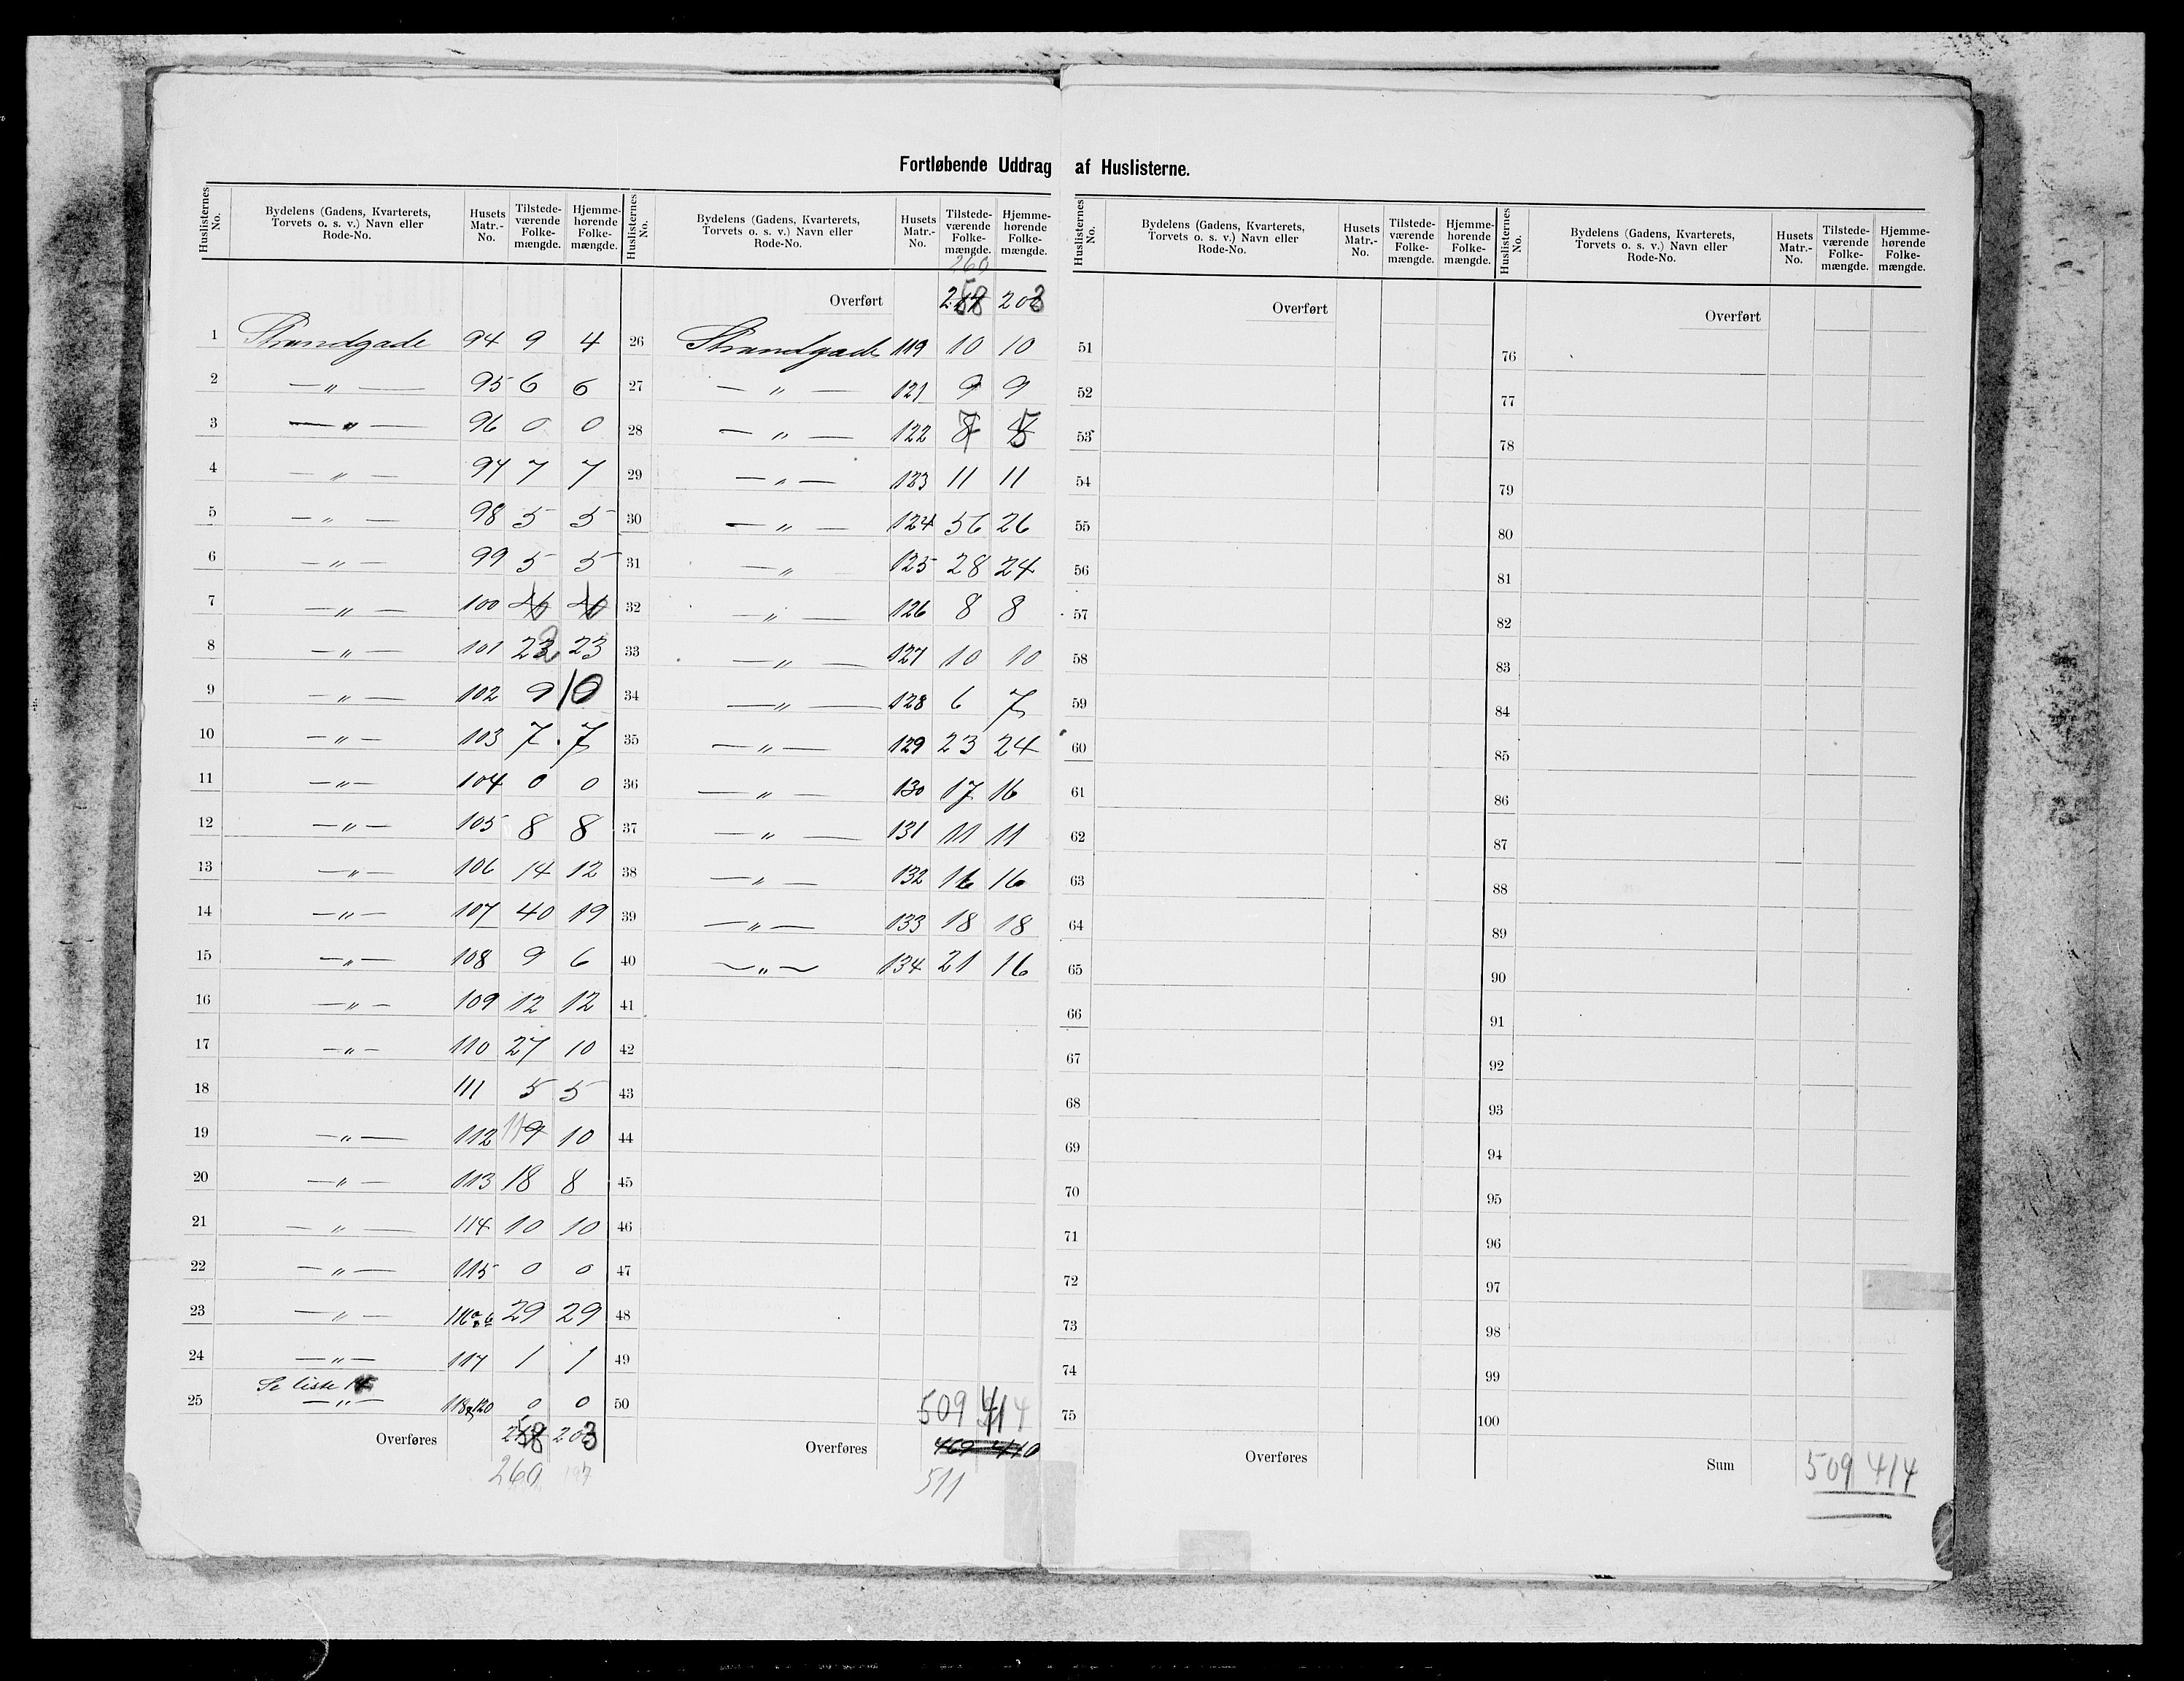 Fortløbende Uddrag af Huslisterne.
Huslisternes No. | Bydelens (Gadens, Kvarterets, Torvets o. s. v.) Navn eller Rode-No. | Husets Matr.-No. | Tilstede-værende Folke-mængde. | Hjemme-hørende Folke-mængde.
1 Strandgade 94 9 4
2 —„— 95 6 6
3 —„— 96 0 0
4 —„— 97 7 7
5 —„— 98 5 5
6 —„— 99 5 5
7 —„— 100
8 —„— 101 23
9 —„— 102 9 10
10 —„— 103 7 7
11 —„— 104 0 0
12 —„— 105 8 8
13 —„— 106 14 12
14 —„— 107 40 19
15 —„— 108 9 6
16 —„— 109 12 12
17 —„— 110 27 10
18 111 5 5
19 —„— 112 9 10
20 —„— 113 18 8
21 —„— 114 10 10
22 —„— 115 0 0
23 —„— 29 29
24 —„— 117 1 1
Se liste
25 —„— 118 120 0 0
Overføres 258 203
260 197
Huslisternes No. | Bydelens (Gadens, Kvarterets, Torvets o. s. v.) Navn eller Rode-No. | Husets Matr.-No. | Tilstede-værende Folke-mængde. | Hjemme-hørende Folke-mængde.
260
Overført 258 203
26 Strandgade 119 10 10
27 —„— 121 9 9
28 —„— 122 7 5
29 —„— 123 11 11
30 —„— 124 56 26
31 —„ 125 28 24
32 —„— 126 8 8
33 —„— 127 10 10
34 —„— 128 6 7
35 —„— 129 23 24
36 —„— 130 17 16
37 —„— 131 11 11
38 —„— 132 16 16
39 —„— 133 18 18
40 —„— 134 21 16
41
42
43
44
45
46
47
48
49
50
509 414
Overføres 469 410
511
Huslisternes No. | Bydelens (Gadens, Kvarterets, Torvets o. s. v.) Navn eller Rode-No. | Husets Matr.-No. | Tilstede-værende Folke-mængde. | Hjemme-hørende Folke-mængde.
Overført
51
52
53
54
55
56
57
58
59
60
61
62
63
64
65
66
67
68
69
70
71
72
73
74
75
Overføres
Huslisternes No. | Bydelens (Gadens, Kvarterets, Torvets o. s. v.) Navn eller Rode-No. | Husets Matr.-No. | Tilstede-værende Folke-mængde. | Hjemme-hørende Folke-mængde.
Overført
76
77
78
79
80
81
82
83
84
85
86
87
88
89
90
91
92
93
94
95
96
97
98
99
100
Sum 509 414